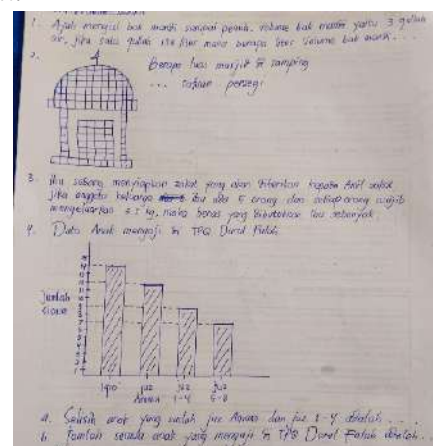 1. Ayah mengisi bak mandi sampai penuh. Volume bak mandi yaitu 3 galon
air, jika satu galon liter maka berapa liter Volume bak mandi . . .
2. Berapa luas masjid di samping
... satuan persegi
3. Ibu sedang menyiapkan zakat yang akan diberikan kepada Amil zakat
jika anggota keluarga ibu ada 5 orang dan setiap orang wajib
mengeluarkan 2.5 kg, maka beras yang dibutuhkan ibu sebanyak
4. Data Anak mengaji di TPQ Darul Falah
Jumlah
siswa
Iqro' juz juz juz
Amma 1-4 5-8
a. Selisih anak yang sudah juz Amma dan juz 1-4 adalah . .
b. Jumlah semua anak yang mengaji di TPQ Darul Falah adalah . .